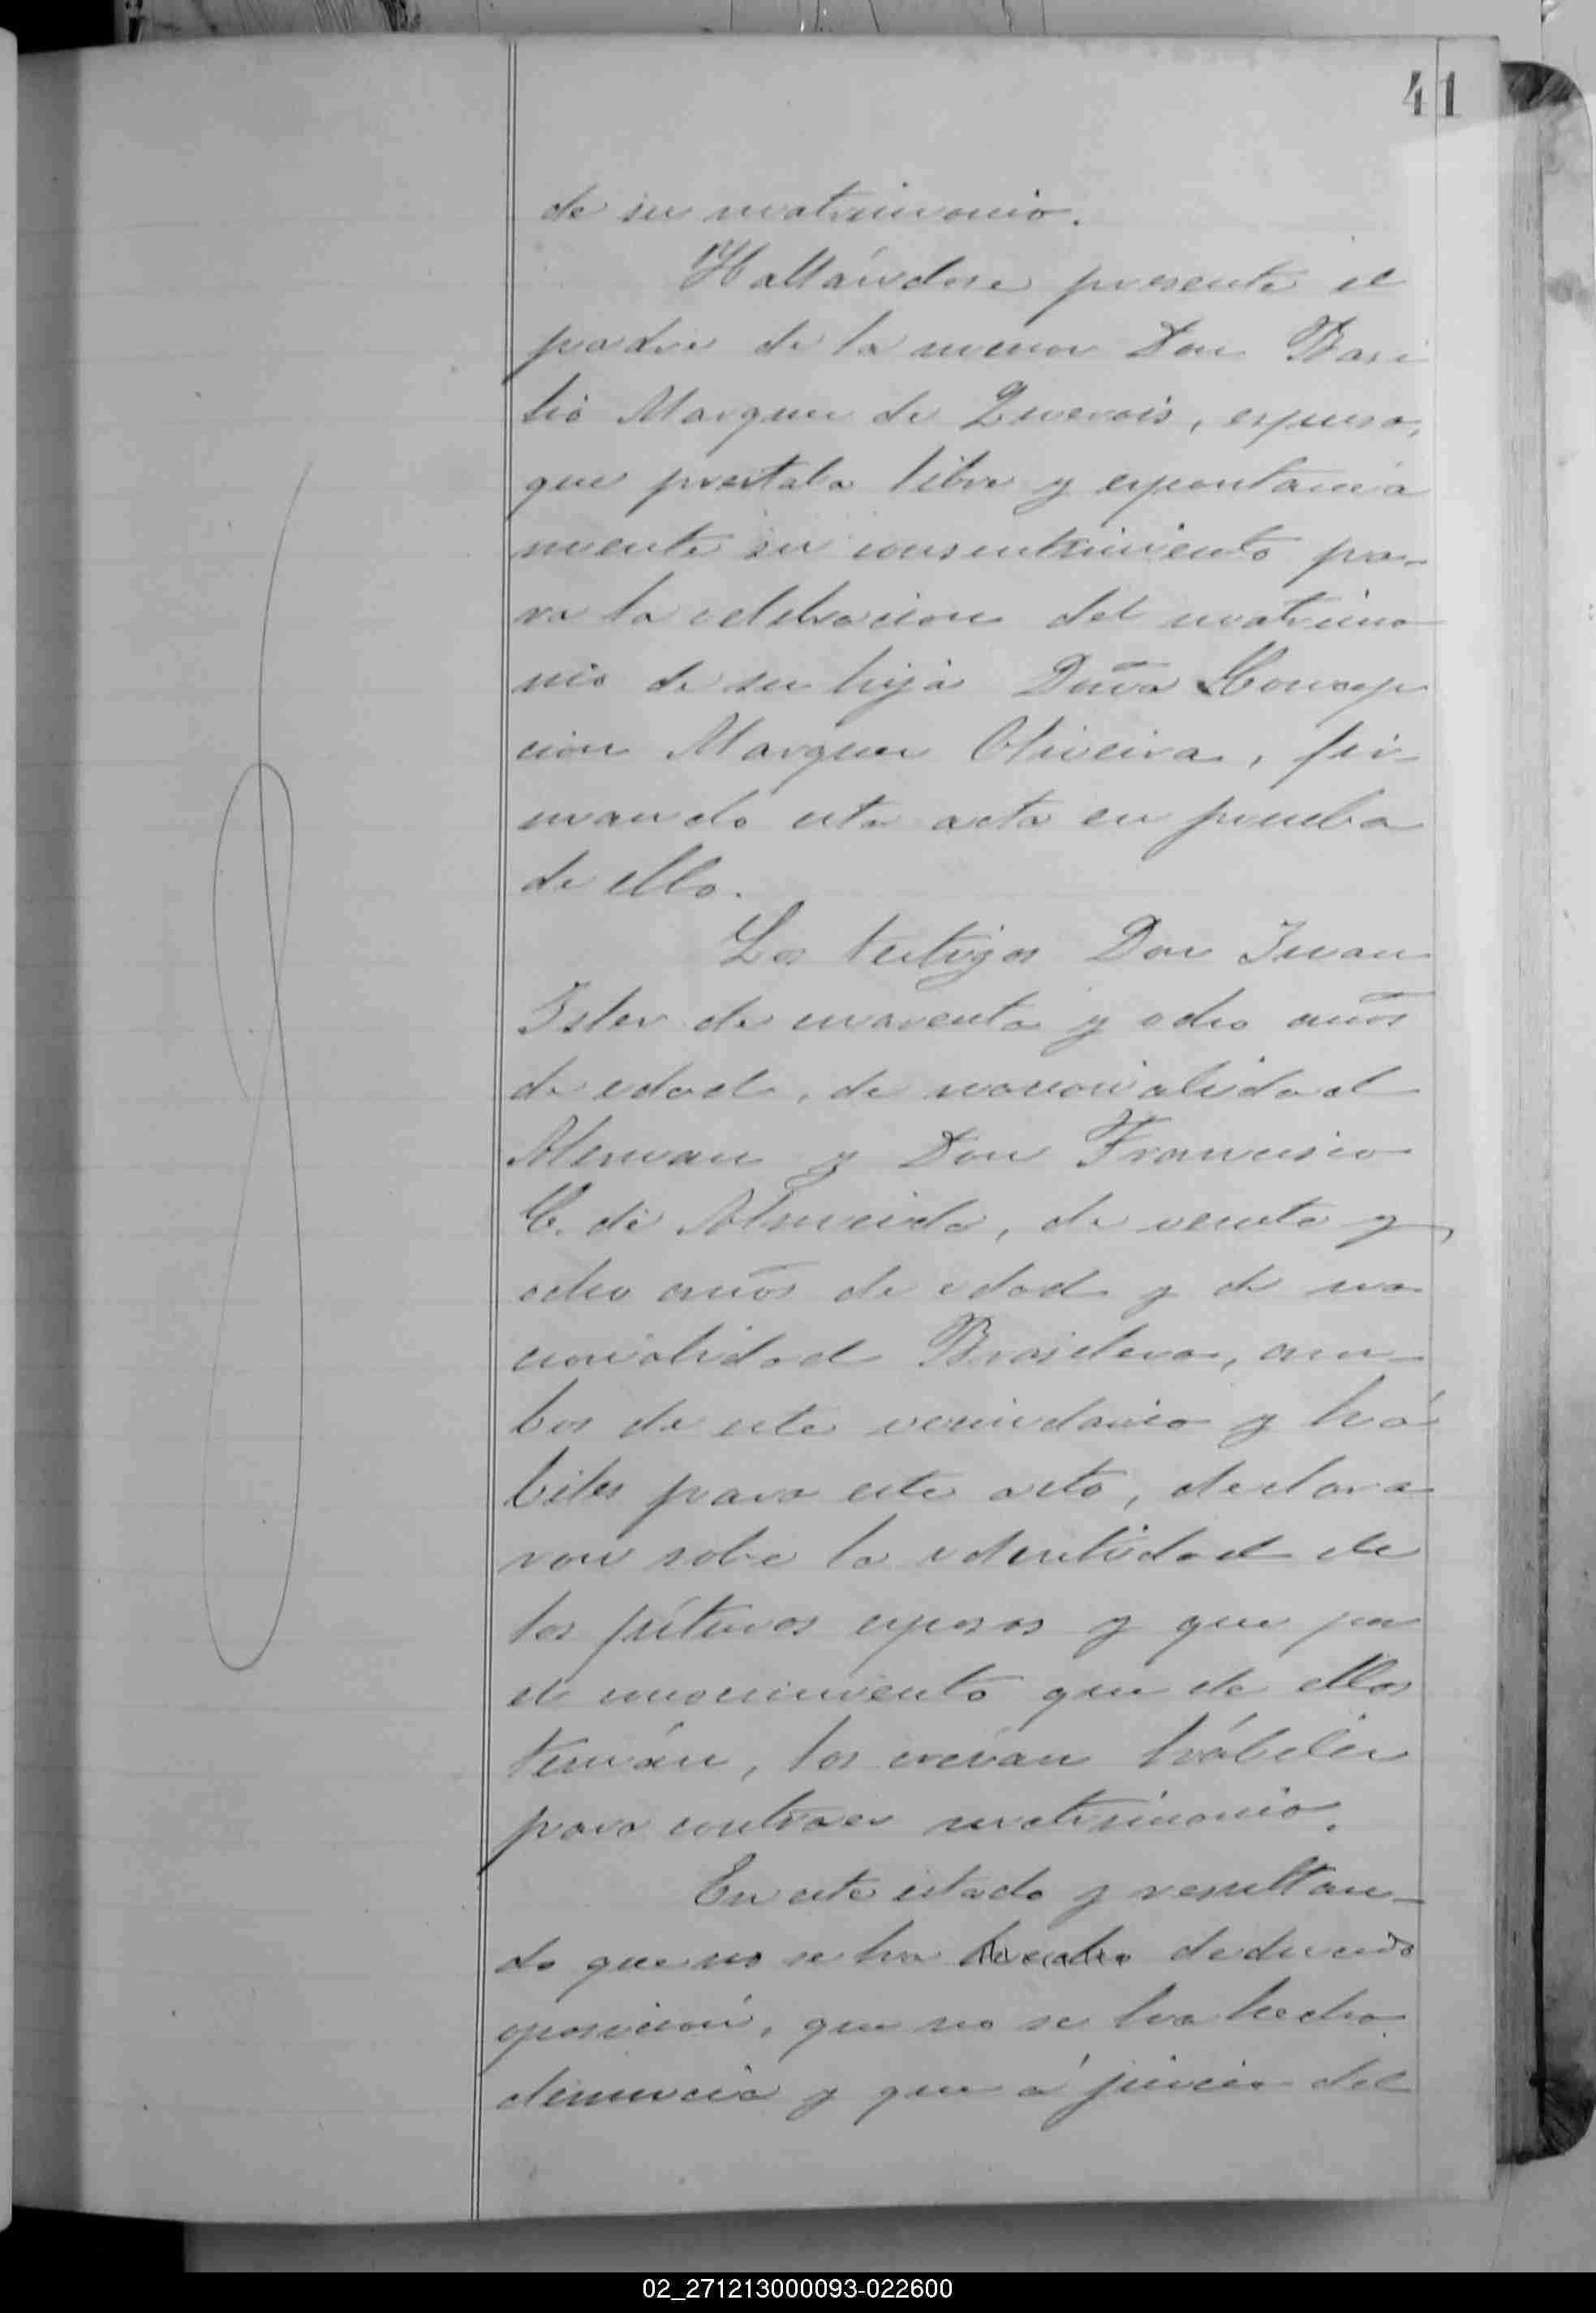 41
de su matrimonio.
Hallándose presente el
padre de la menor Don Basi
lio Marquez de Quevois, espuso,
que prestaba libre y espontanea
mente su consentimiento pa-
ra la celebracion del matrimo
nio de su hija Doña Concep
cion Marquez Oliveira, fir-
mando esta acta en prueba
de ello.
Los testigos Don Juan
Isler de cuarenta y ocho años
de edad, de nacionalidad
Aleman y Don Francisco
C. de Almeida, de veinte y
ocho años de edad y de na
cionalidad Brasilera, am-
bos de este vecindario y há
biles para este acto, declara
ron sobre la identidad de
los fúturos esposos y que por
el conocimiento que de ellos
tenían, los creían hábiles
para contraer matrimonio.
En este estado y resultan-
do que no se ha deducido
oposición, que no se ha hecho
denuncia y que á juicio del
02_271213000093-022600